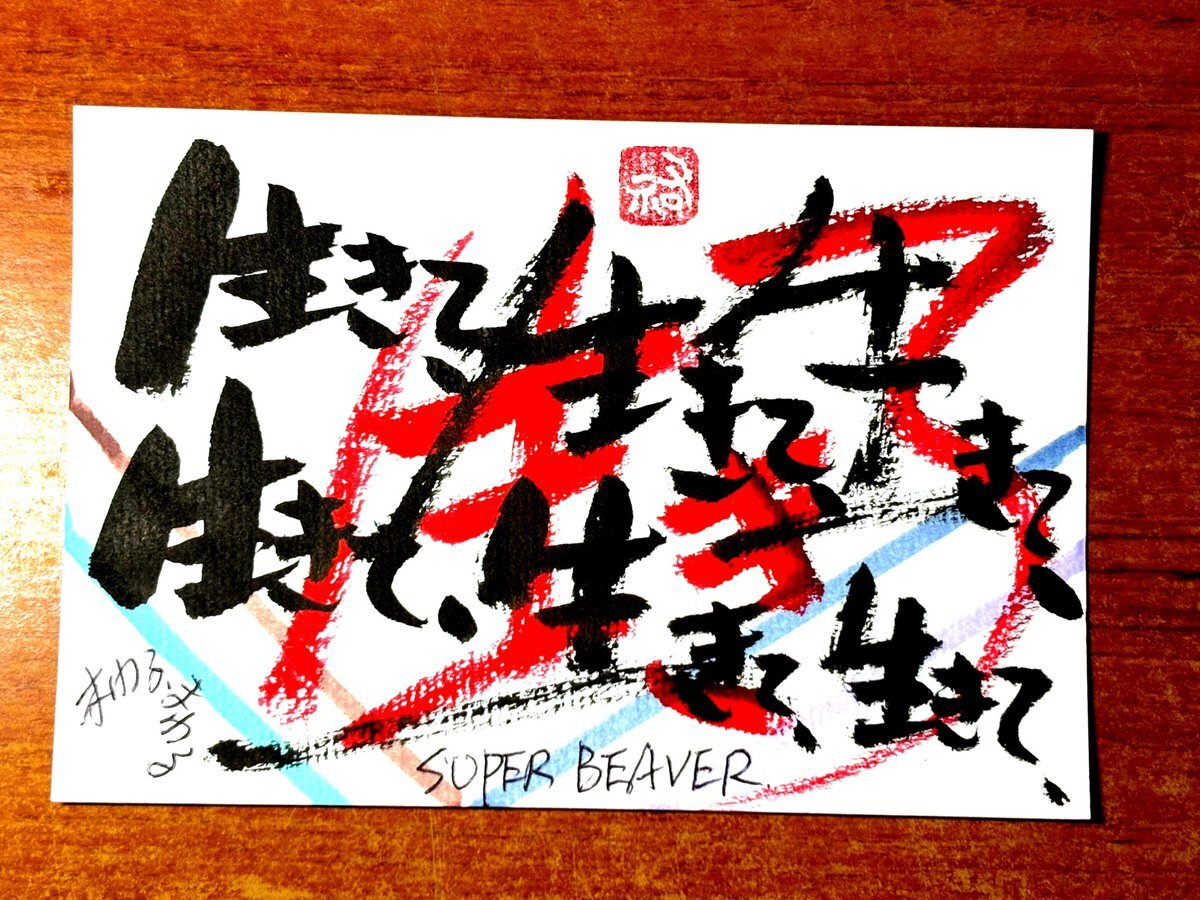 生きて、生きて、生きて、
生きて、生きて、生きて、
まわる、まわる
SUPER BEAVER